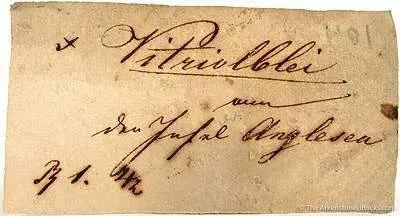 104
x Vitriolblei
von
der Insel Anglesea
1.
The Arkenstone, iRocks.com